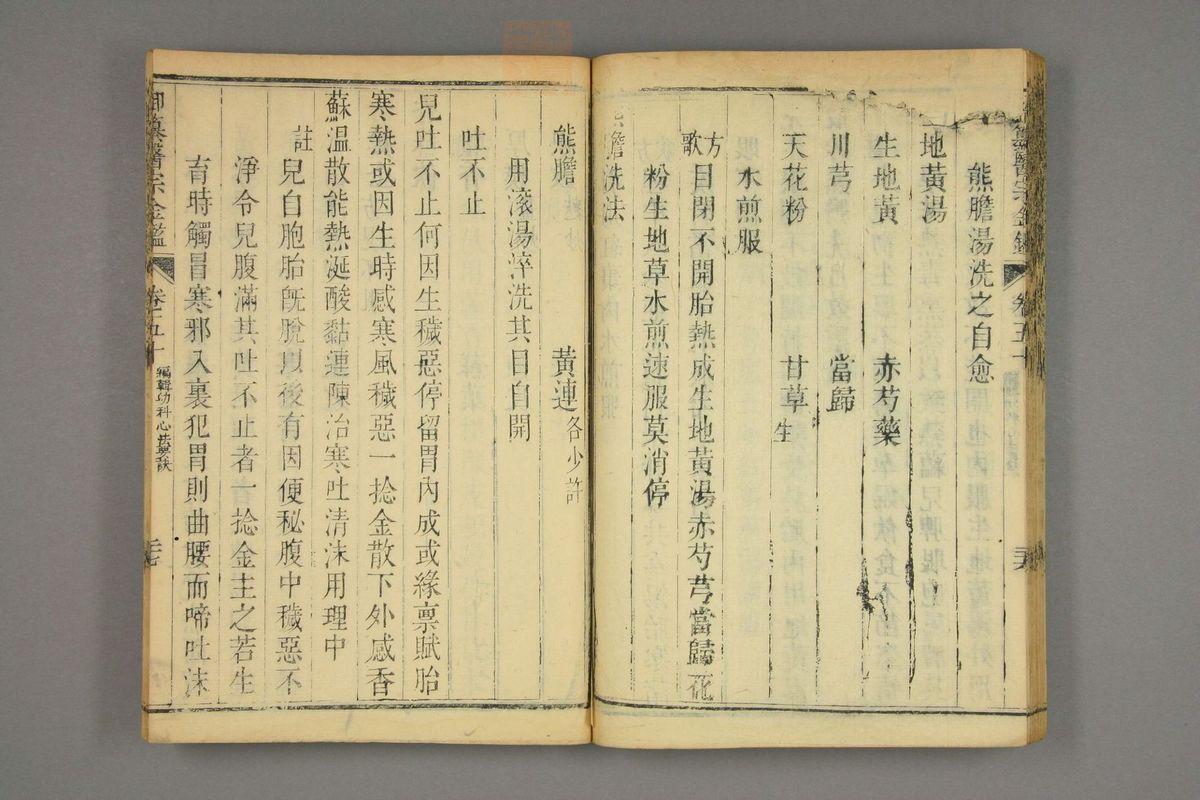 熊膽湯洗之自愈
地黃湯
生地黃 赤芍藥
川芎 當歸
天花粉 甘草生
水煎服
方歌 目閉不開胎熱成生地黃湯赤芍芎當歸花
粉生地草水煎速服莫消停
膽洗法
熊膽 黃連各少許
用滾湯淬洗其目自開
吐不止
兒吐不止何因生穢惡停留胃內成或緣稟賦胎
寒熱或因生時感寒風穢惡一捻金散下外感香
蘇溫散能熱涎酸黏連陳治寒吐清沫用理中
註 兒自胞胎旣脫以後有因便秘腹中穢惡不
淨令兒腹滿其吐不止者一捻金主之若生
育時觸冒寒邪入裏犯胃則曲腰而啼吐沫
御纂醫宗金鑑 卷五十 編輯幼科心法要訣